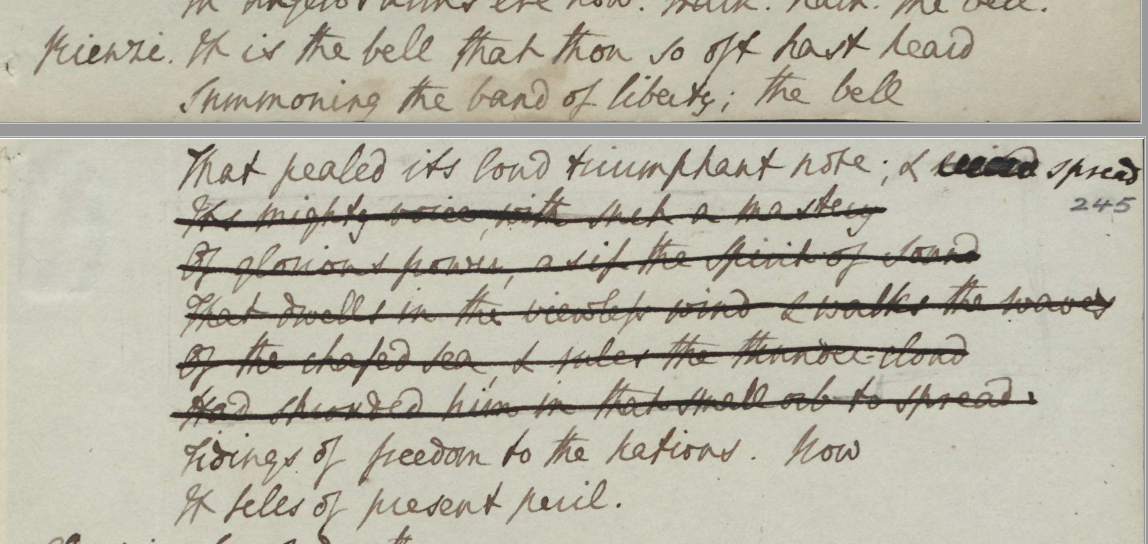 Rienzi. It is the bell that thou so oft hast heard
Summoning the band of liberty; the bell
That pealed its loud triumphant note; & spread
245
Its mighty voice, with such a mastery
Of glorious power, as if the spirit of sound
That dwells in the viewless wind & walks the waves
Of the chafed sea, & rules the thunder-cloud
Had shrouded him in that small orb to spread.
Tidings of freedom to the nations. Now
It tells of present peril.